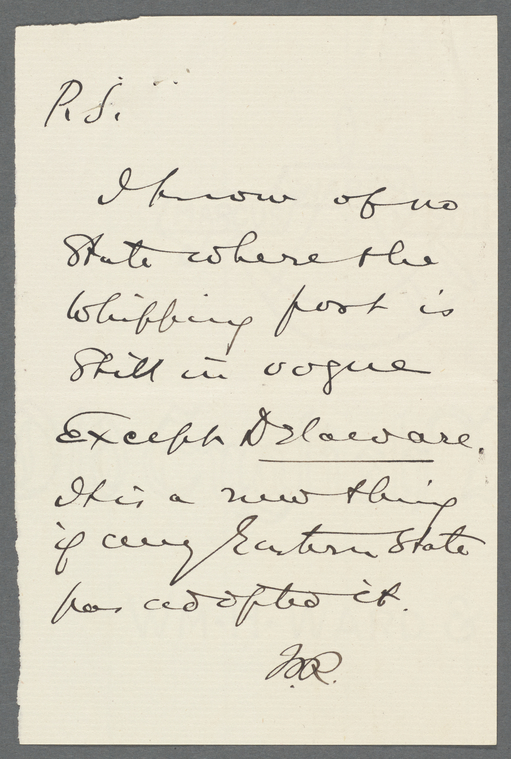 P.S.
I know of no
State where the
Whipping post is
Still in vogue
Except Delaware.
It is a new thing
if any Eastern State
has adopted it.